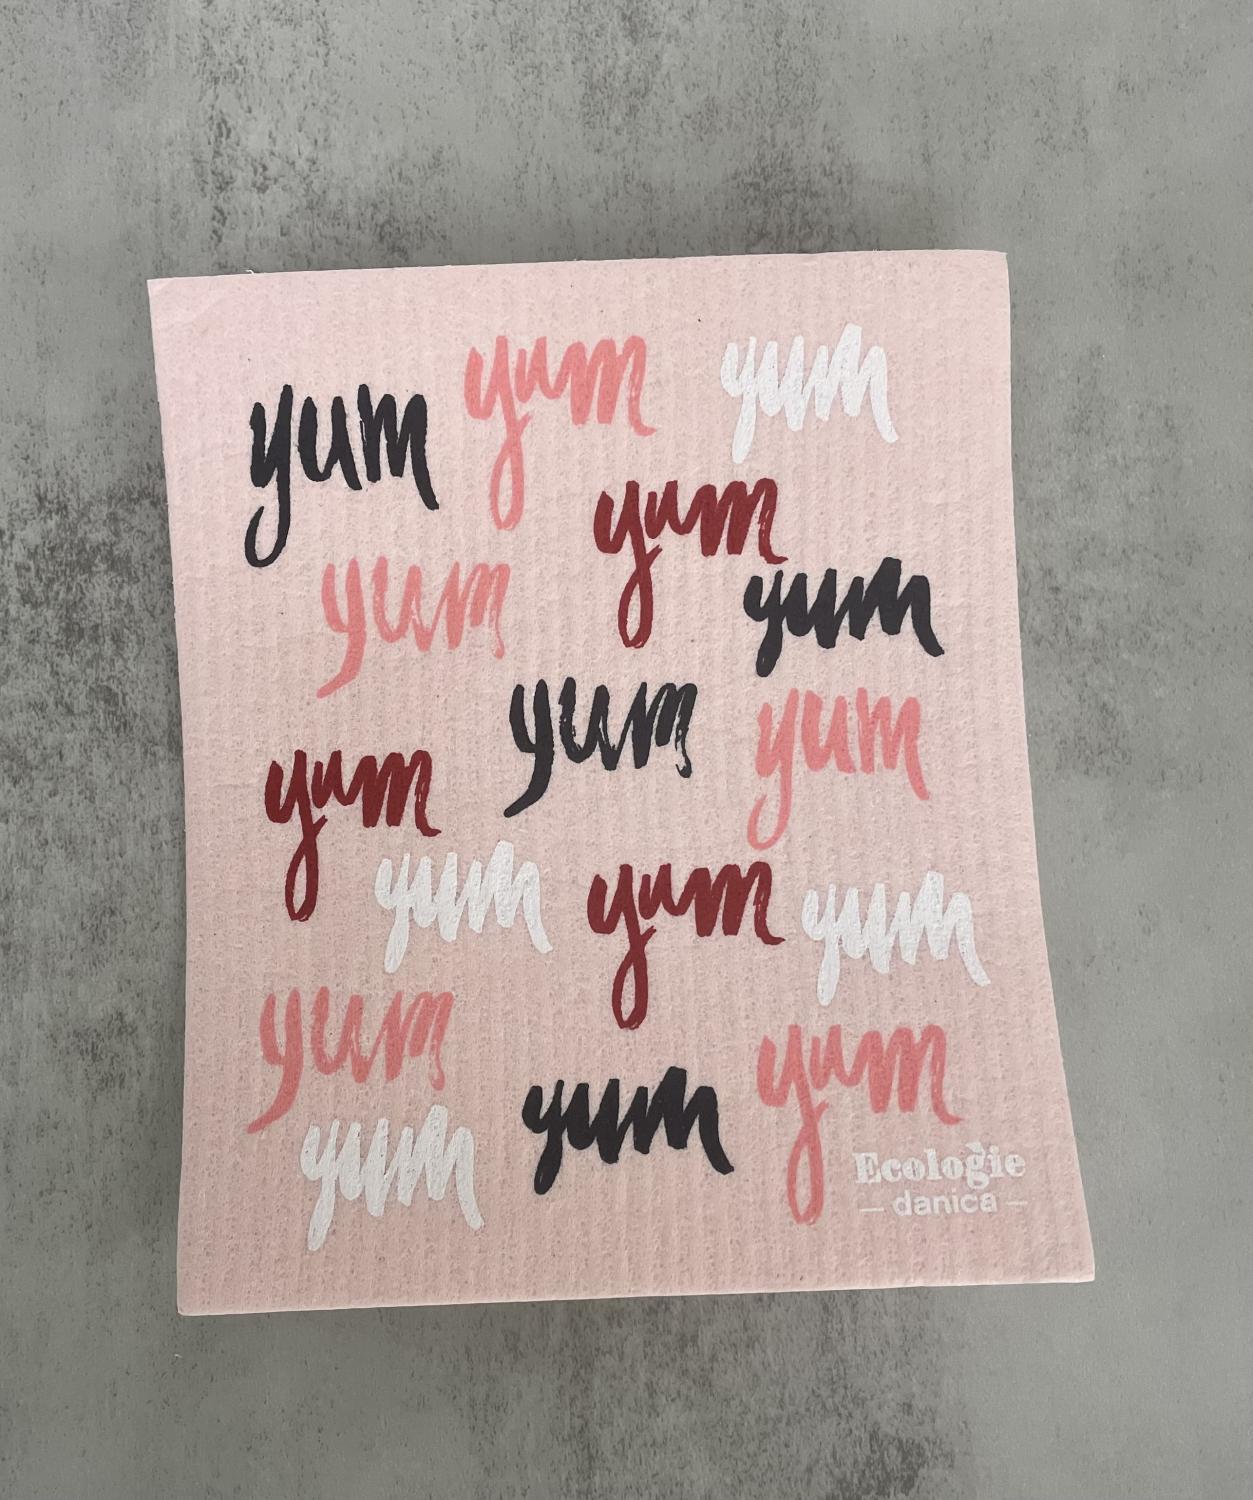 yum yum yum
yum yum yum
yum yum yum
yum yum yum
yum yum yum
yum
Ecologie
— danica —